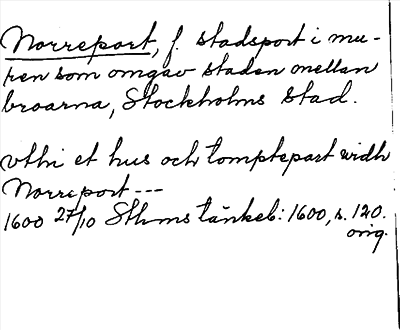 Norreport, f. stadsport i mu-
ren som omgav staden mellan
broarna, Stockholms stad.
vthi et hus och tomptepart widh
Norreport ---
1600 27/10 Sthms tänkeb: 1600, s. 120.
orig.